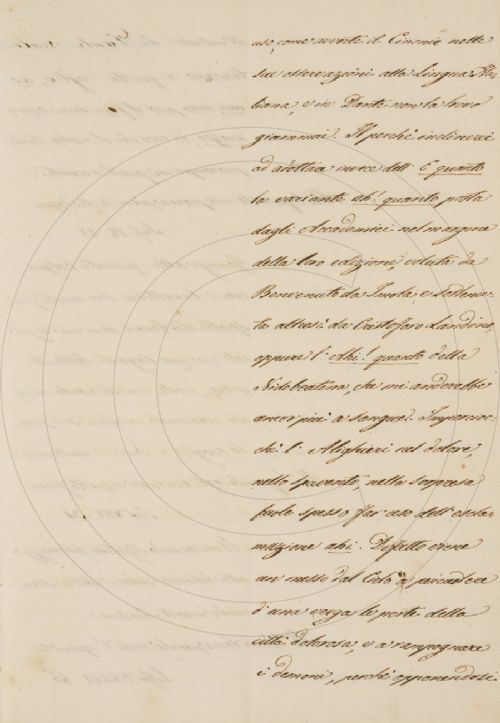 uso, come avverte il Cinonio nelle
sue osservazioni alla Lingua Ita-
liana, e in Dante non la trovi
giammai. Il perchè inclinerei
ad adottar invece dell' E quanto
la variante eh! quanto, posta
dagli Accademici nel margine
della loro edizione, voluta da
Benvenuto da Imola, e sostenu-
ta altresì da Cristoforo Landino,
oppure l' Ahi! quanto della
Nidobeatina, che mi anderebbe
ancor più a sangue. Imperoc-
chè l' Alighieri nel dolore,
nello spavento, nella sorpresa
suole spesso far uso dell' escla-
mazione ahi. Difatto
un messo dal Cielo a percuotere
d' una verga le porte della
città dolorosa, e a rampognare
i demonj, perchè opponendosi